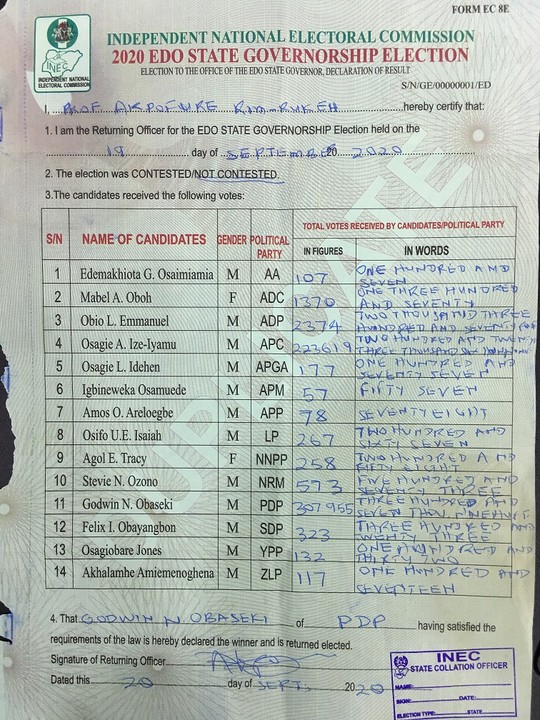 FORM EC 8E
INDEPENDENT NATIONAL ELECTORAL COMMISSION
2020 EDO STATE GOVERNORSHIP ELECTION
ELECTION TO THE OFFICE OF THE EDO STATE GOVERNOR, DECLARATION OF RESULT
INEC
INDEPENDENT NATIONAL
ELECTORAL COMMISSION
S/N/GE/00000001/ED
I, PROF AKPOFURE RIM-RUKEH hereby certify that:
1. I am the Returning Officer for the EDO STATE GOVERNORSHIP Election held on the
19 day of SEPTEMBER 20 2020
2. The election was CONTESTED/NOT CONTESTED.
3.The candidates received the following votes:
S/N NAME OF CANDIDATES GENDER POLITICAL PARTY TOTAL VOTES RECEIVED BY CANDIDATES/POLITICAL PARTY
IN FIGURES IN WORDS
1 Edemakhiota G. Osaimiamia M AA 107 ONE HUNDRED AND SEVEN
2 Mabel A. Oboh F ADC 1370 ONE THREE HUNDRED AND SEVENTY
3 Obio L. Emmanuel M ADP 2374 TWO THOUSAND THREE HUNDRED AND SEVENTY
4 Osagie A. Ize-Iyamu M APC 223619 TWO HUNDRED AND TWENTY THREE THOUSAND
5 Osagie L. Idehen M APGA 177 ONE HUNDRED AND SEVENTY SEVEN
6 Igbineweka Osamuede M APM 57 FIFTY SEVEN
7 Amos O. Areloegbe M APP 78 SEVENTY EIGHT
8 Osifo U.E. Isaiah M LP 267 TWO HUNDRED AND SIXTY SEVEN
9 Agol E. Tracy F NNPP 258 TWO HUNDRED AND FIFTY EIGHT
10 Stevie N. Ozono M NRM 573 FIVE HUNDRED AND SEVENTY THREE
11 Godwin N. Obaseki M PDP 307955 THREE HUNDRED AND SEVEN
12 Felix I. Obayangbon M SDP 323 THREE HUNDRED AND TWENTY THREE
13 Osagiobare Jones M YPP 132 ONE HUNDRED AND THIRTY TWO
14 Akhalamhe Amiemenoghena M ZLP 117 ONE HUNDRED AND SEVENTEEN
4. That GODWIN N. OBASEKI of PDP having satisfied the
requirements of the law is hereby declared the winner and is returned elected.
Signature of Returning Officer
Dated this 20 day of SEPT, 2020
INEC
STATE COLLATION OFFICER
NAME:
SIGN: DATE:
ELECTION TYPE: STATE